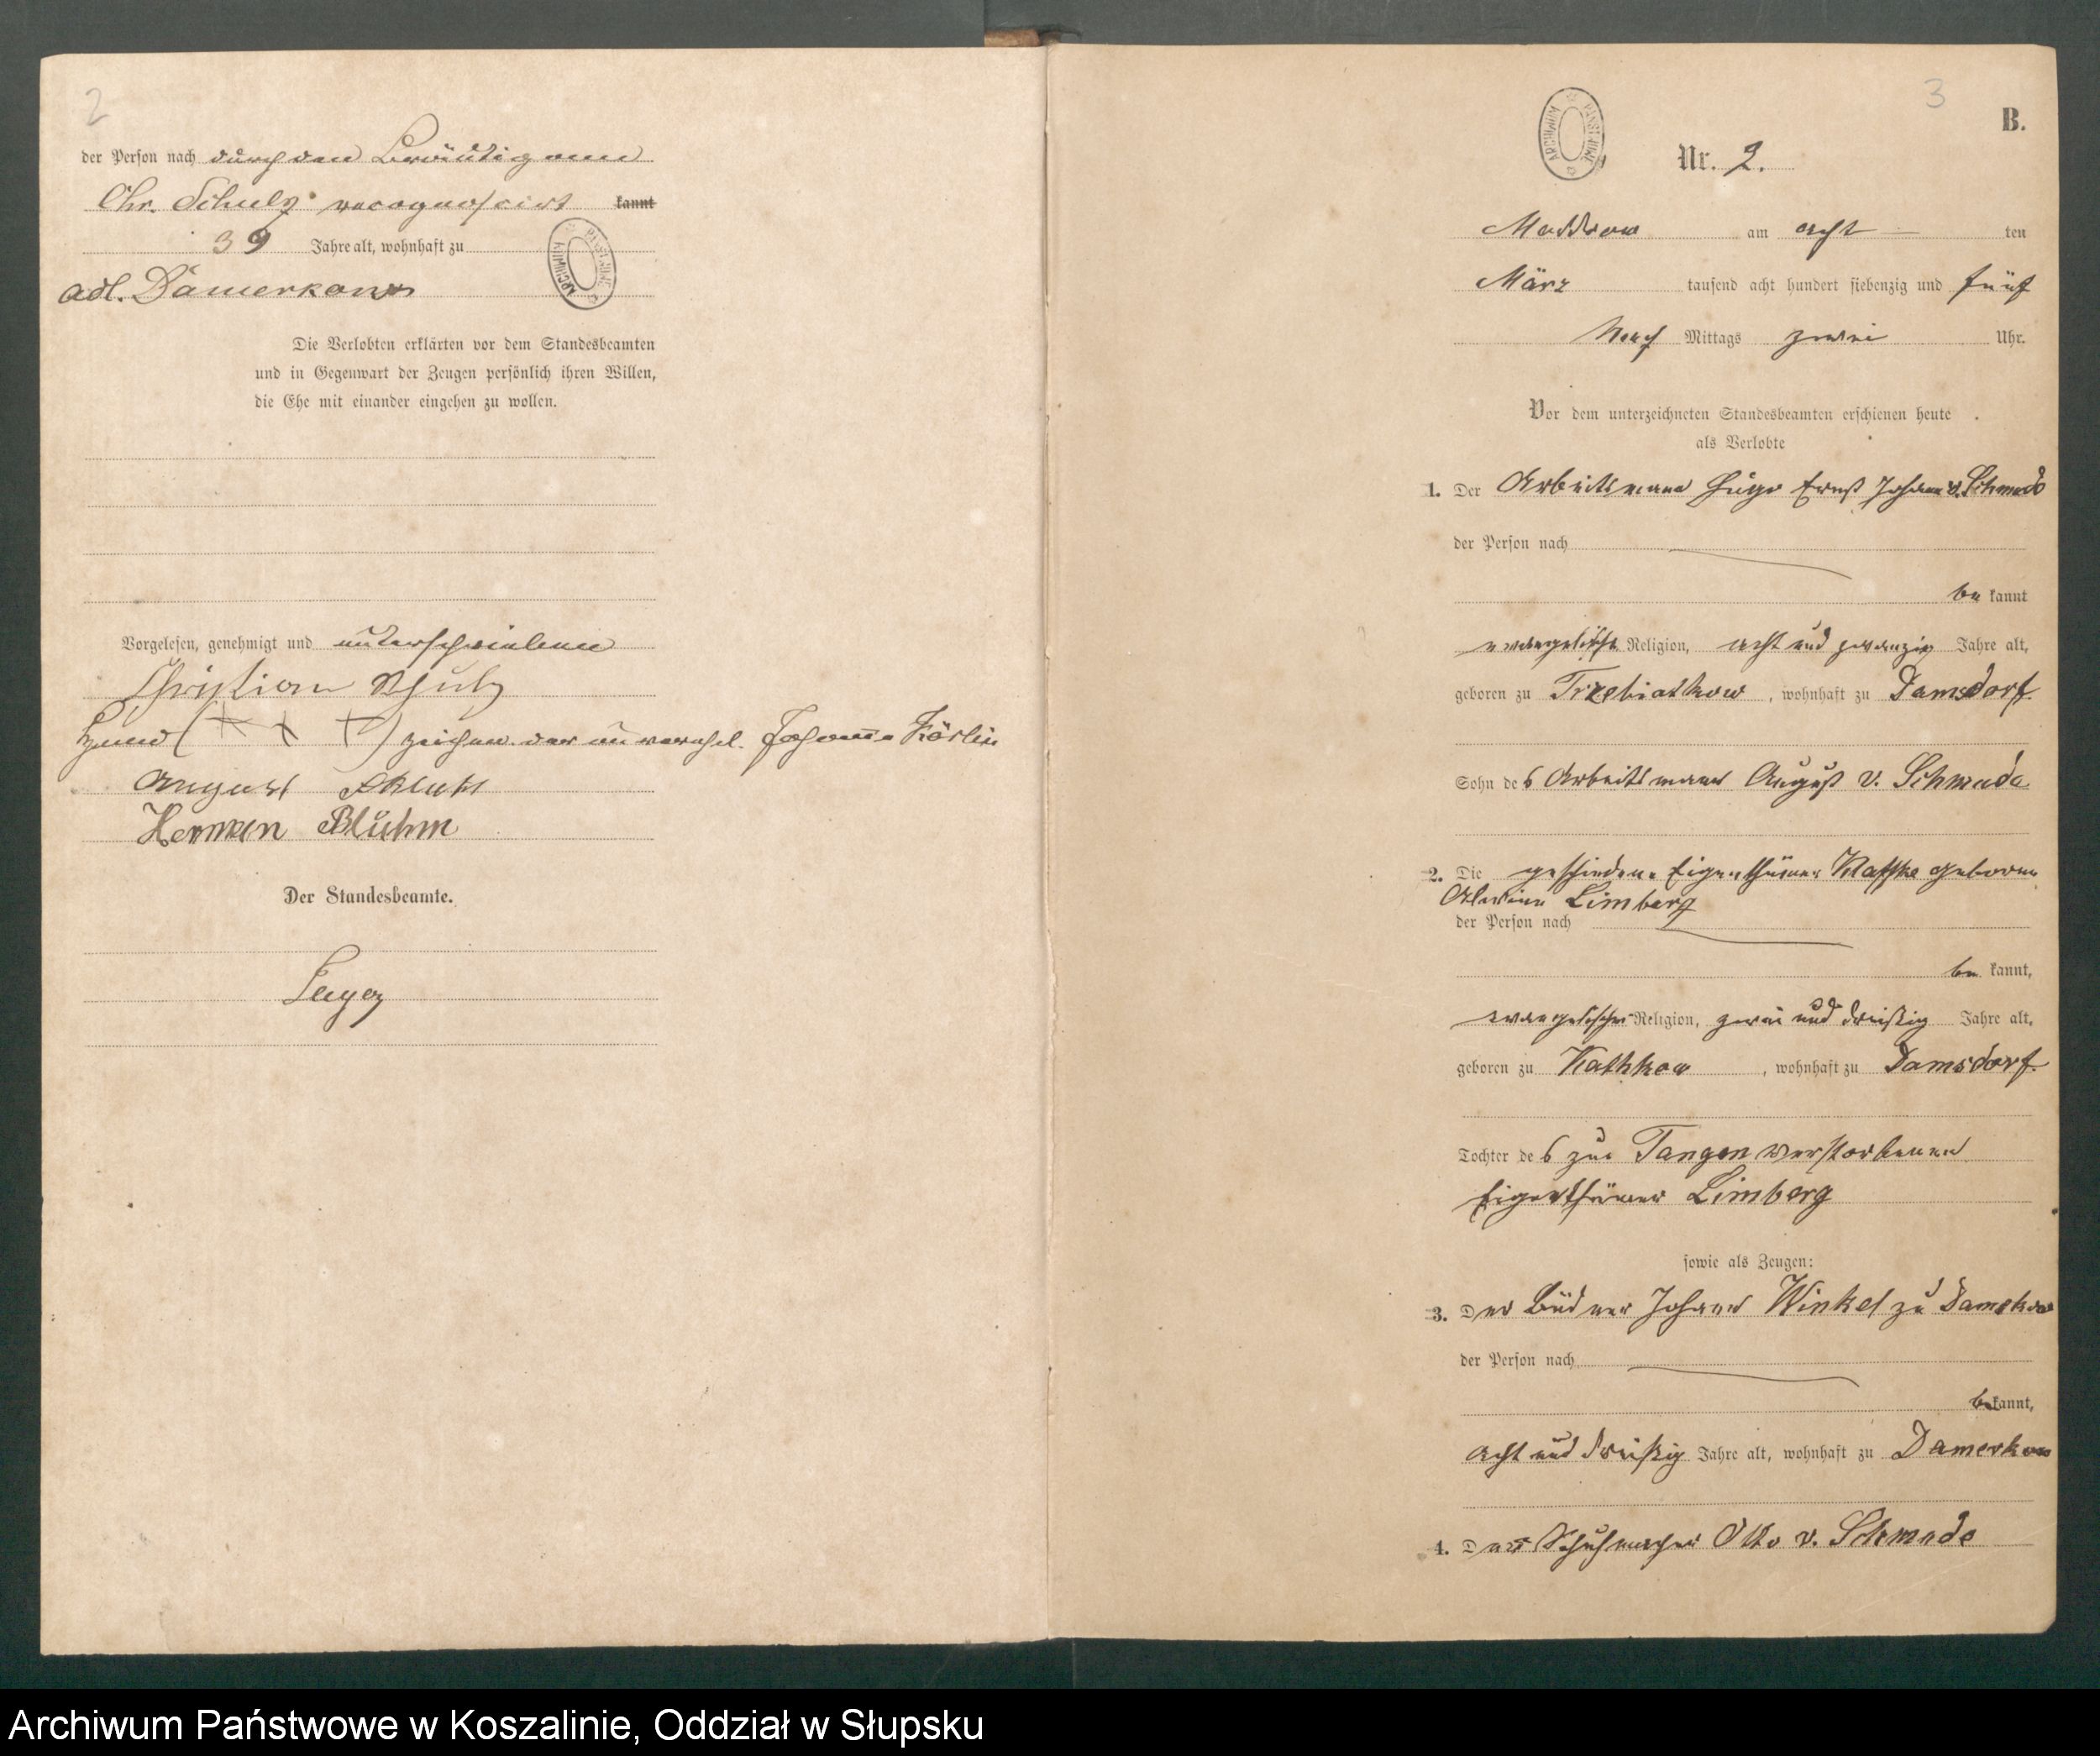 2
der Person nach durch den Bräutigam
Chr. Schulz recognoscirt kannt
39 Jahre alt, wohnhaft zu
adl. Damerkow
Die Verlobten erklärten vor dem Standesbeamten
und in Gegenwart der Zeugen persönlich ihren Willen,
die Ehe mit einander eingehen zu wollen.
Vorgelesen, genehmigt und unterschrieben
Christian Schulz
Hand (+ + +) zeichen der unverehel. Johanna Körlin
August
Herman Bluhm
Der Standesbeamte.
3
B.
ARCHIWUM PAŃSTWOWE
Nr. 2.
Maddrow am acht ten
März tausend acht hundert siebenzig und fünf
Nach Mittags zwei Uhr.
Vor dem unterzeichneten Standesbeamten erschienen heute
als Verlobte
1. Der Arbeitsmann Hugo Ernst Johann v. Schmude
der Person nach
be kannt
evangelische Religion, acht und zwanzig Jahre alt,
geboren zu Trzebiatkow, wohnhaft zu Damsdorf.
Sohn des Arbeitsmann August v. Schmude
2. Die geschiedene Eigenthümer Klatzke geborene
Alwine Limberg
der Person nach
be kannt,
evangelischer Religion, zwei und dreißig Jahre alt,
geboren zu Kathkow, wohnhaft zu Damsdorf.
Tochter des zu Tangen verstorbenen
Eigenthümer Limberg
sowie als Zeugen:
3. Der Büdner Johann Winkel zu Damerkow
der Person nach
bekannt,
acht und dreißig Jahre alt, wohnhaft zu Damerkow
4. Der Schuhmacher Otto v. Schmude
Archiwum Państwowe w Koszalinie, Oddział w Słupsku